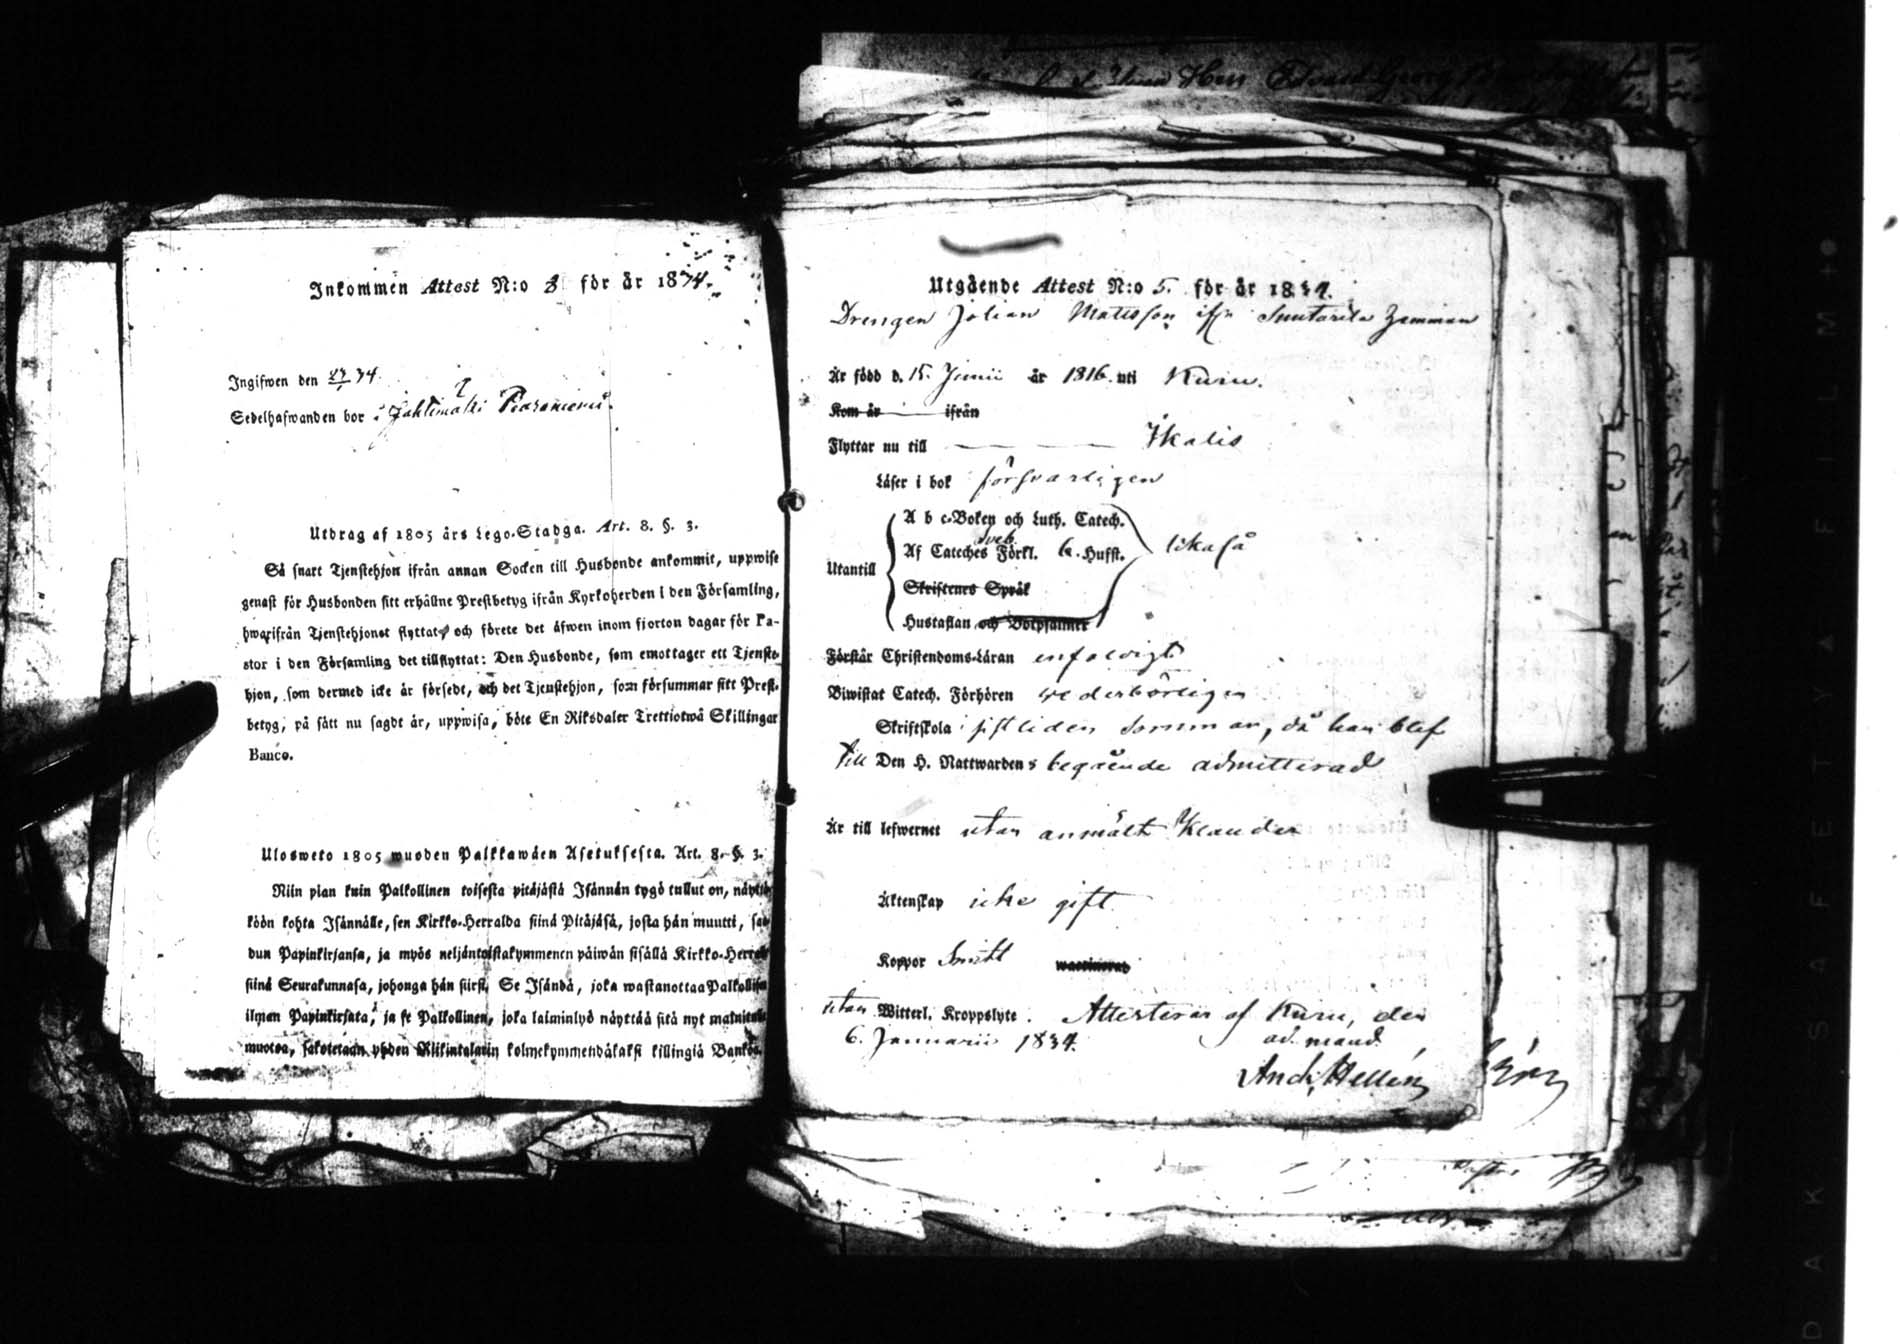 Inkommen Attest N:o 3 för år 1834.
Ingifwen den 27/1 34.
Sedelhafwanden bor i
Utdrag af 1805 års Lego-Stadga. Art. 8. §. 3.
Så snart Tjenstehjon ifrån annan Socken till Husbonde ankommit, uppwise
genast för Husbonden sitt erhållne Prestbetyg ifrån Kyrkoherden i den Församling,
hwarifrån Tjenstehjonet flyttat, och förete det äfwen inom fjorton dagar för Pa-
stor i den Församling det tillflyttat: Den Husbonde, som emottager ett Tjenste-
hjon, som dermed icke är försedt, och det Tjenstehjon, som försummar sitt Prest-
betyg, på sätt nu sagdt är, uppwisa, böte En Riksdaler Trettiotwå Skillingar
Banco.
Ulosweto 1805 wuoden Palkkawäen Asetuksesta. Art. 8. §. 3.
Niin pian kuin Palkollinen toisesta pitäjästä Isännän tygö tullut on, näyttä-
köön kohta Isännälle, sen Kirkko-Herralda siinä Pitäjäsä, josta hän muutti, saa-
dun Papinkirjansa, ja myös neljäntoistakymmenen päiwän sisällä Kirkko-Herralle
siinä Seurakunnasa, johonga hän siirsi. Se Isändä, joka wastanottaa Palkollisen
ilman Papinkirjata, ja se Palkollinen, joka laiminlyö näyttää sitä nyt mainitulla
muotoa, sakotetaan yhden Riikintalarin kolmekymmendäkaksi killingiä Bankos.
Utgående Attest N:o 5. för år 1834.
Drengen Johan Matsson ifr.
Är född d. 15. Junii år 1816 uti Kuru.
Kom år ifrån
Flyttar nu till Ikalis
Läser i bok försvarligen
A b c-Boken och Luth. Catech.
Af Cateches Sveb. Förkl. Hufst. likaså
Utantill
Skriftenes Språk
Hustaflan och Botpsalmer
Förstår Christendoms-Läran enfaldigt
Biwistat Catech. Förhören vederbörligen
Skriftskola sistliden sommar, då han blef
till Den H. Nattwardens begående admitterad
Är till lefwernet utan anmält klander
Äktenskap icke gift
Koppor Smitt waccinerad
utan Witterl. Kroppslyte. Attesterar af Kuru, den
6. Januarii 1834. ad mand.
And. Hellén